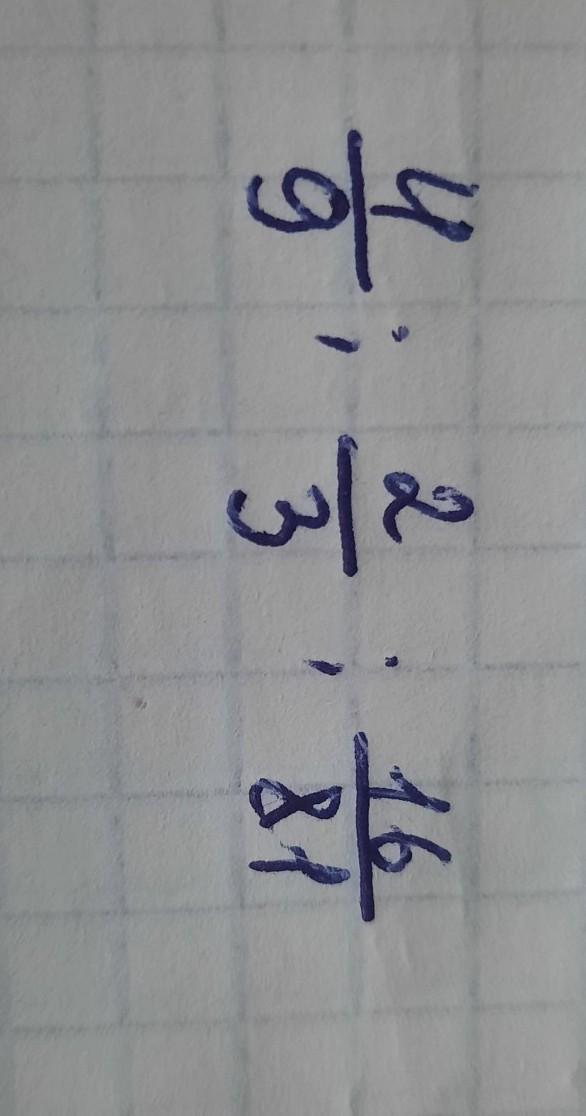 4/9 ; 2/3 ; 16/81